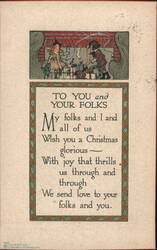 TO YOU and
YOUR FOLKS
My folks and I and
all of us
Wish you a Christmas
glorious —
With joy that thrills
us through and
through
We send love to your
folks and you.